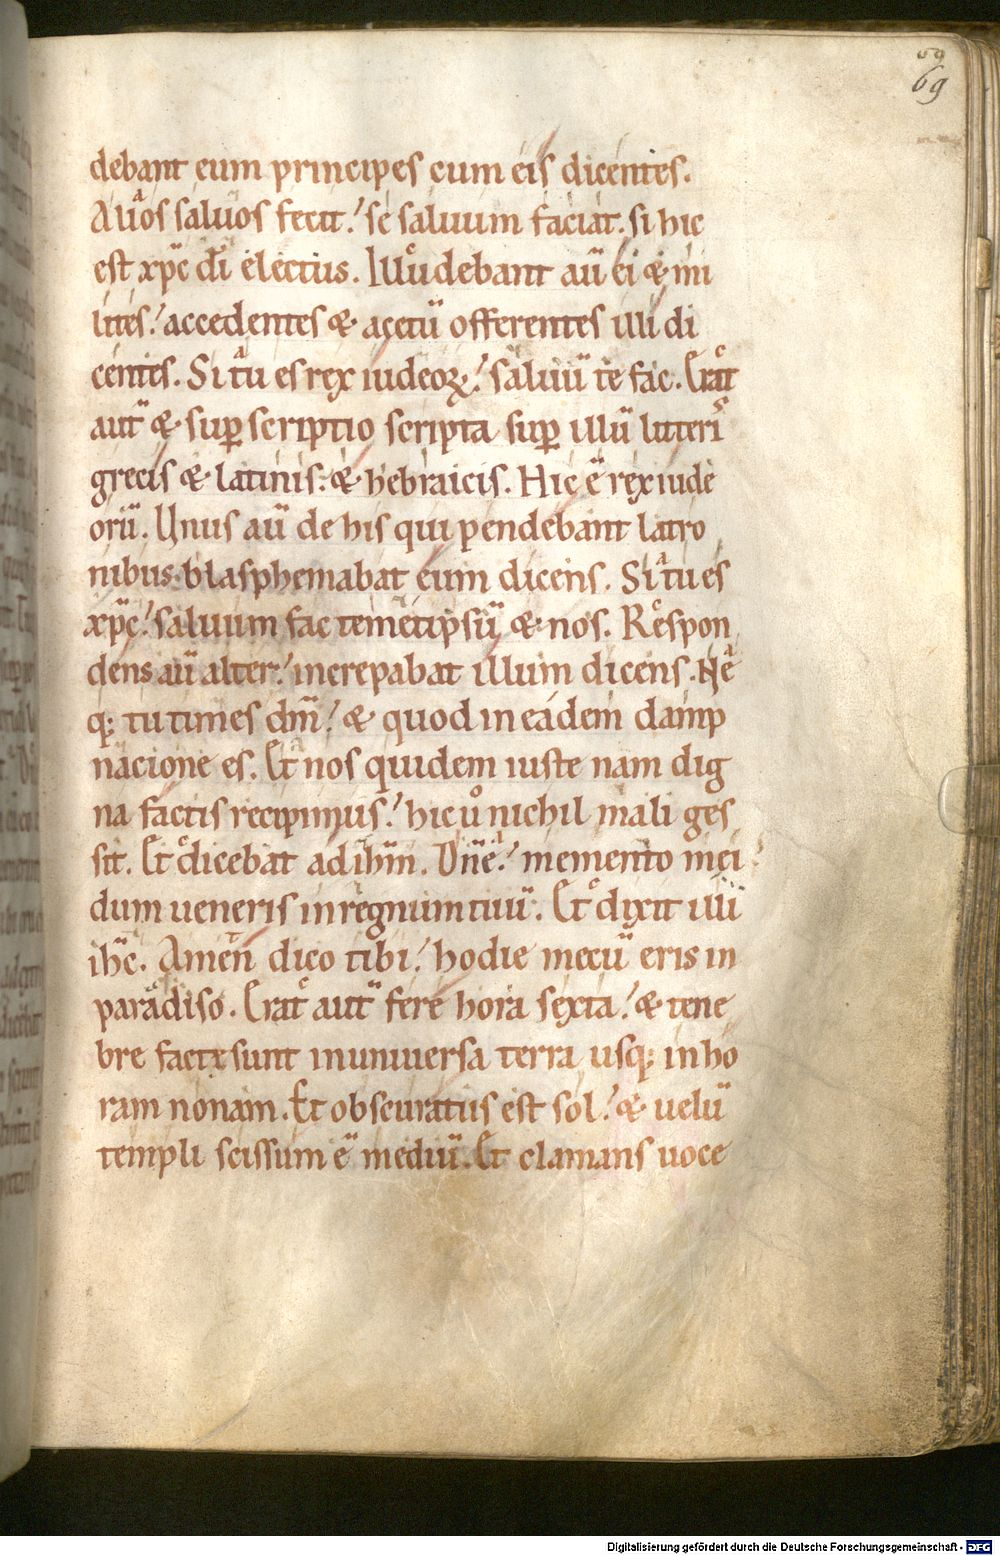 59
69
debant eum principes cum eis dicentes.
Alios saluos fecit. se saluum faciat. si hic
est xp̄c dī electus. Illudebant aū ei & mi
lites. accedentes & acetū offerentes illi di
centes. Si tu es rex iudeoꝝ. saluū te fac. Erat
aut̄ & sup̄ scriptio scripta sup̄ illū litteris
grecis & latinis. & hebraicis. Hic ē rex iude
orū. Unus aū de his qui pendebant latro
nibus blasphemabat eum dicens. Si tu es
xp̄c. saluum fac temetipsū & nos. Respon
dens aū alter. increpabat illum dicens. Ne
q; tu times dm̄. & quod in eadem damp
nacione es. Et nos quidem iuste nam dig
na factis recipimus. hic uͦ nichil mali ges
sit. Et dicebat ad ihm̄. Dn̄e. memento mei
dum ueneris in regnum tuū. Et dixit illi
ih̄c. Amen dico tibi. hodie mecū eris in
paradiso. Erat aut̄ fere hora sexta. & tene
bre factę sunt in uniuersa terra usq; in ho
ram nonam. Et obscuratus est sol. & uelū
templi scissum ē mediū. Et clamans uoce
Digitalisierung gefördert durch die Deutsche Forschungsgemeinschaft - DFG